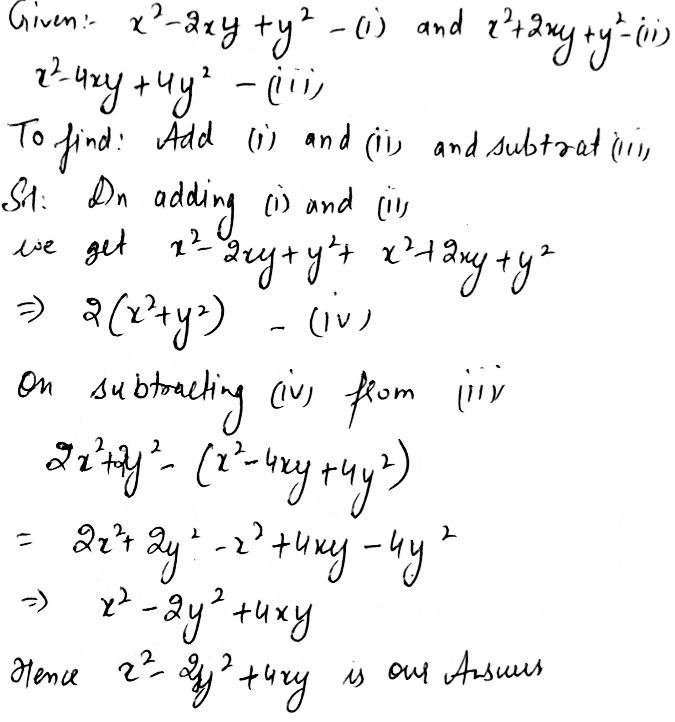 Given:- x²-2xy+y² -(i) and x²+2xy+y²-(ii)
x²-4xy+4y² -(iii)
To find: Add (i) and (ii) and subtrat (iii)
Sol: On adding (i) and (ii)
we get x²-2xy+y²+ x²+2xy+y²
⇒ 2(x²+y²) -(iv)
On subtracting (iv) from (iii)
2x²+2y²- (x²-4xy+4y²)
= 2x²+2y²-x²+4xy-4y²
⇒ x²-2y²+4xy
Hence x²-2y²+4xy is our